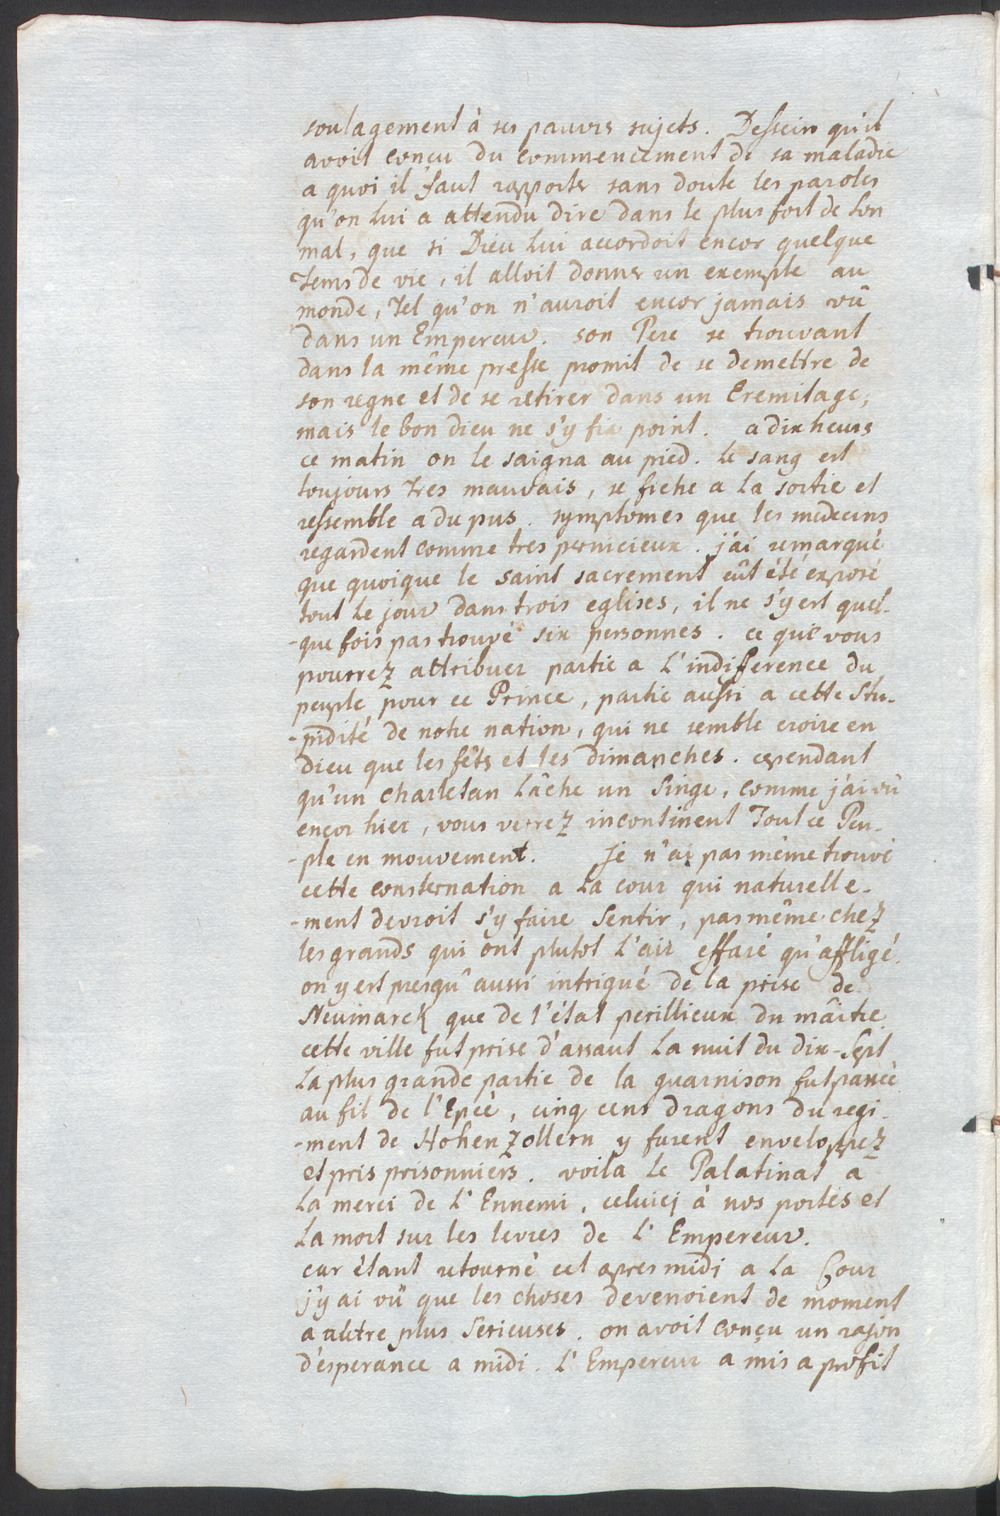 soulagement à ses pauvres sujets. Dessein qu'il
avoit conçu du commencement de sa maladie
a quoi il faut rapporter sans doute les paroles
qu'on lui a attendu dire dans le plus fort de son
mal, que si Dieu lui accordoit encor quelque
tems de vie, il alloit donner un exemple au
monde, tel qu'on n'auroit encor jamais vû
dans un Empereur. son Pere se trouvant
dans la même presse promit de se demettre de
son regne et de se retirer dans un Eremitage;
mais le bon dieu ne s'y fia point. a dix heurs
ce matin on le saigna au pied. le sang est
toujours tres mauvais, se fiche a la sortie et
ressemble a du pus. symptomes que les medecins
regardent comme tres pernicieux. j'ai remarqué
que quoique le saint sacrement eût été exposé
tout le jour dans trois eglises, il ne s'y est quel-
-que fois pas trouvé six personnes. ce que vous
pourrez attribuer partie a l'indiference du
peuple pour ce Prince, partie aussi a cette stu-
-pidité de notre nation, qui ne semble croire en
dieu que les fêts et les dimanches. cependant
qu'un charletan lâche un singe, comme j'ai vû
encor hier, vous verrez incontinent tout ce Peu-
-ple en mouvement. Je n'ai pas même trouvé
cette consternation a la cour qui naturelle-
-ment devroit s'y faire sentir, pas même chez
les grands qui ont plutot l'air effaré qu'affligé.
on y est presqu'aussi intrigué de la prise de
Neumarck que de l'état perillieux du maître
cette ville fut prise d'assaut la nuit du dix-sept
la plus grande partie de la guarnison fut passée
au fil de l'Epeé, cinq cens dragons du regi-
-ment de Hohenzollern y furent enveloppez
et pris prisonniers. voila le Palatinat a
la merci de l'Ennemi, celuicj à nos portes et
la mort sur les levres de l'Empereur.
car étant retourné cet apres midi a la Cour
j'y ai vû que les choses devenoient de moment
a autre plus serieuses. on avoit conçu un rajon
d'esperance a midi. l'Empereur a mis a profit